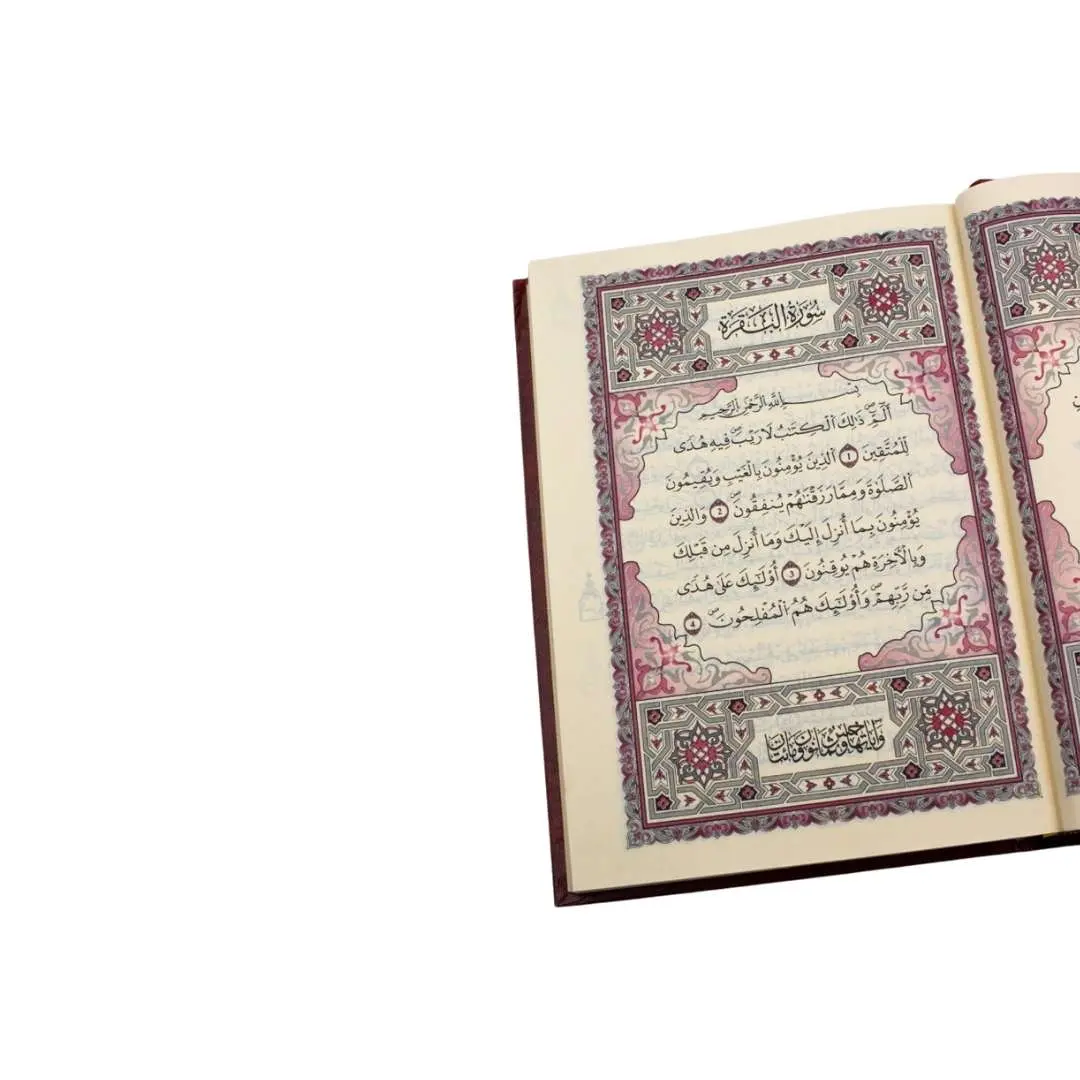 سُورَةُ الْبَقَرَةِ
بِسْمِ اللَّهِ الرَّحْمَٰنِ الرَّحِيمِ
أَلَٓمِّٓ ذَٰلِكَ اَ۬لْكِتَٰبُ لَا رَيْبَۖ فِيهِ هُدىٗ
لِّلْمُتَّقِينَ 1 اَ۬لذِينَ يُؤْمِنُونَ بِالْغَيْبِ وَيُقِيمُونَ
اَ۬لصَّلَوٰةَ وَمِمَّا رَزَقْنَٰهُمْ يُنفِقُونَۖ 2 وَالذِينَ
يُؤْمِنُونَ بِمَآ أُنزِلَ إِلَيْكَ وَمَآ أُنزِلَ مِن قَبْلِكَ
وَبِالْأٓخِرَةِ هُمْ يُوقِنُونَۖ 3 أُوْلَٰٓئِكَ عَلَىٰ هُدىٗ
مِّن رَّبِّهِمْۖ وَأُوْلَٰٓئِكَ هُمُ اُ۬لْمُفْلِحُونَۖ 4
وَآيَاتُهَا خَمْسٌ وَثَمَانُونَ وَمِائَتَانِ